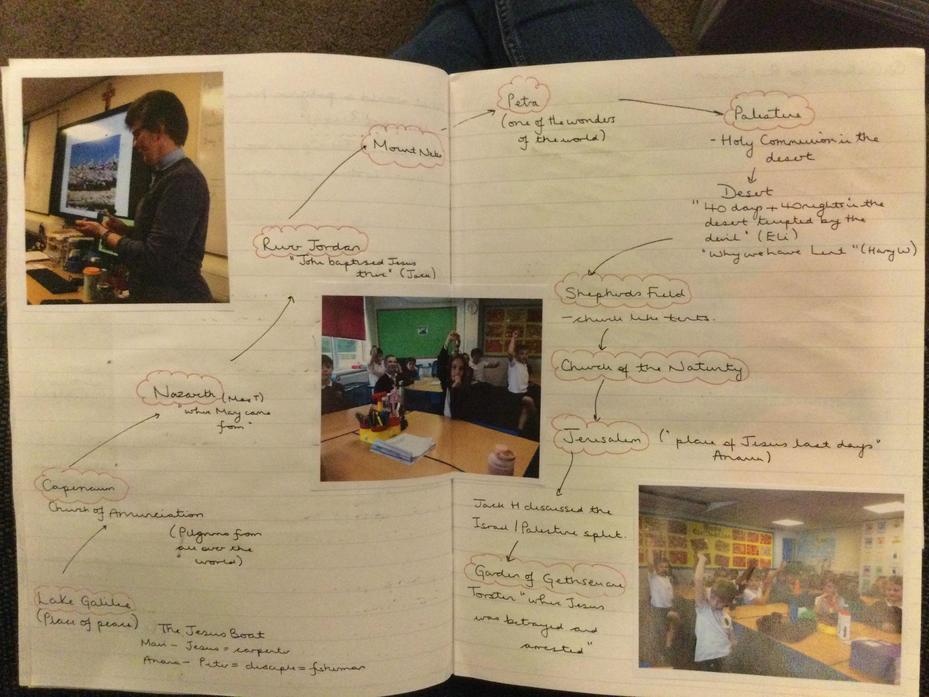 Mount Nebo
River Jordan
"John baptised Jesus
there" (Jack)
Nazareth (Max T)
"where Mary came
from"
Capernaum
Church of Annunciation
(Pilgrims from
all over the
world)
Lake Galilee
(Place of peace)
The Jesus Boat
- Jesus = carpenter
Anana - Peter = disciple = fisherman
Petra
(one of the wonders
of the world)
Palestine
- Holy Communion in the
desert
Desert
"40 days + 40 nights in the
desert tempted by the
devil" (Eli)
"Why we have Lent" (Harry W)
Shepherds Field
- church like tents.
Church of the Nativity
Jerusalem ("place of Jesus last days"
Anana)
Jack H discussed the
Israel / Palestine split.
Garden of Gethsemane
Torsten "where Jesus
was betrayed and
arrested"